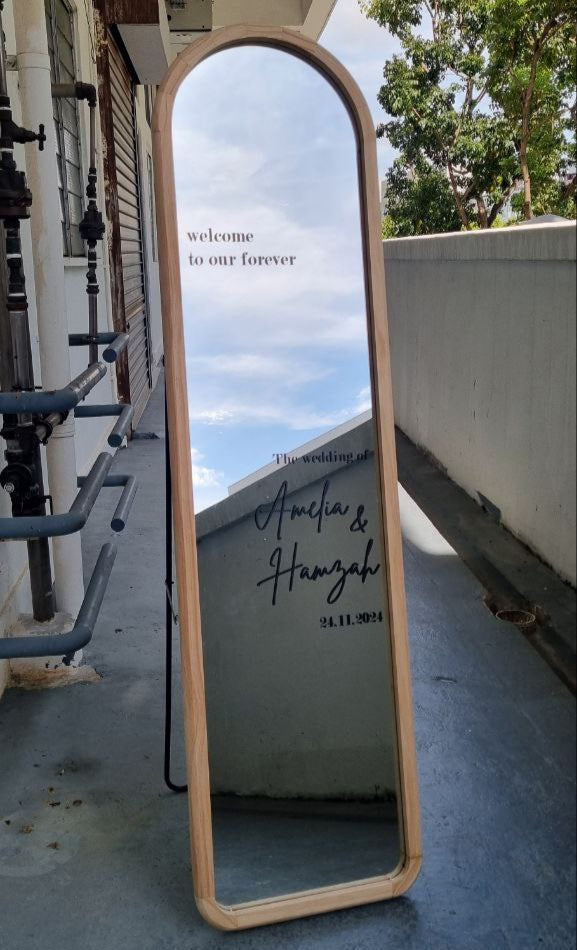 welcome
to our forever
The wedding of
Amelia
&
Hamzah
24.11.2024